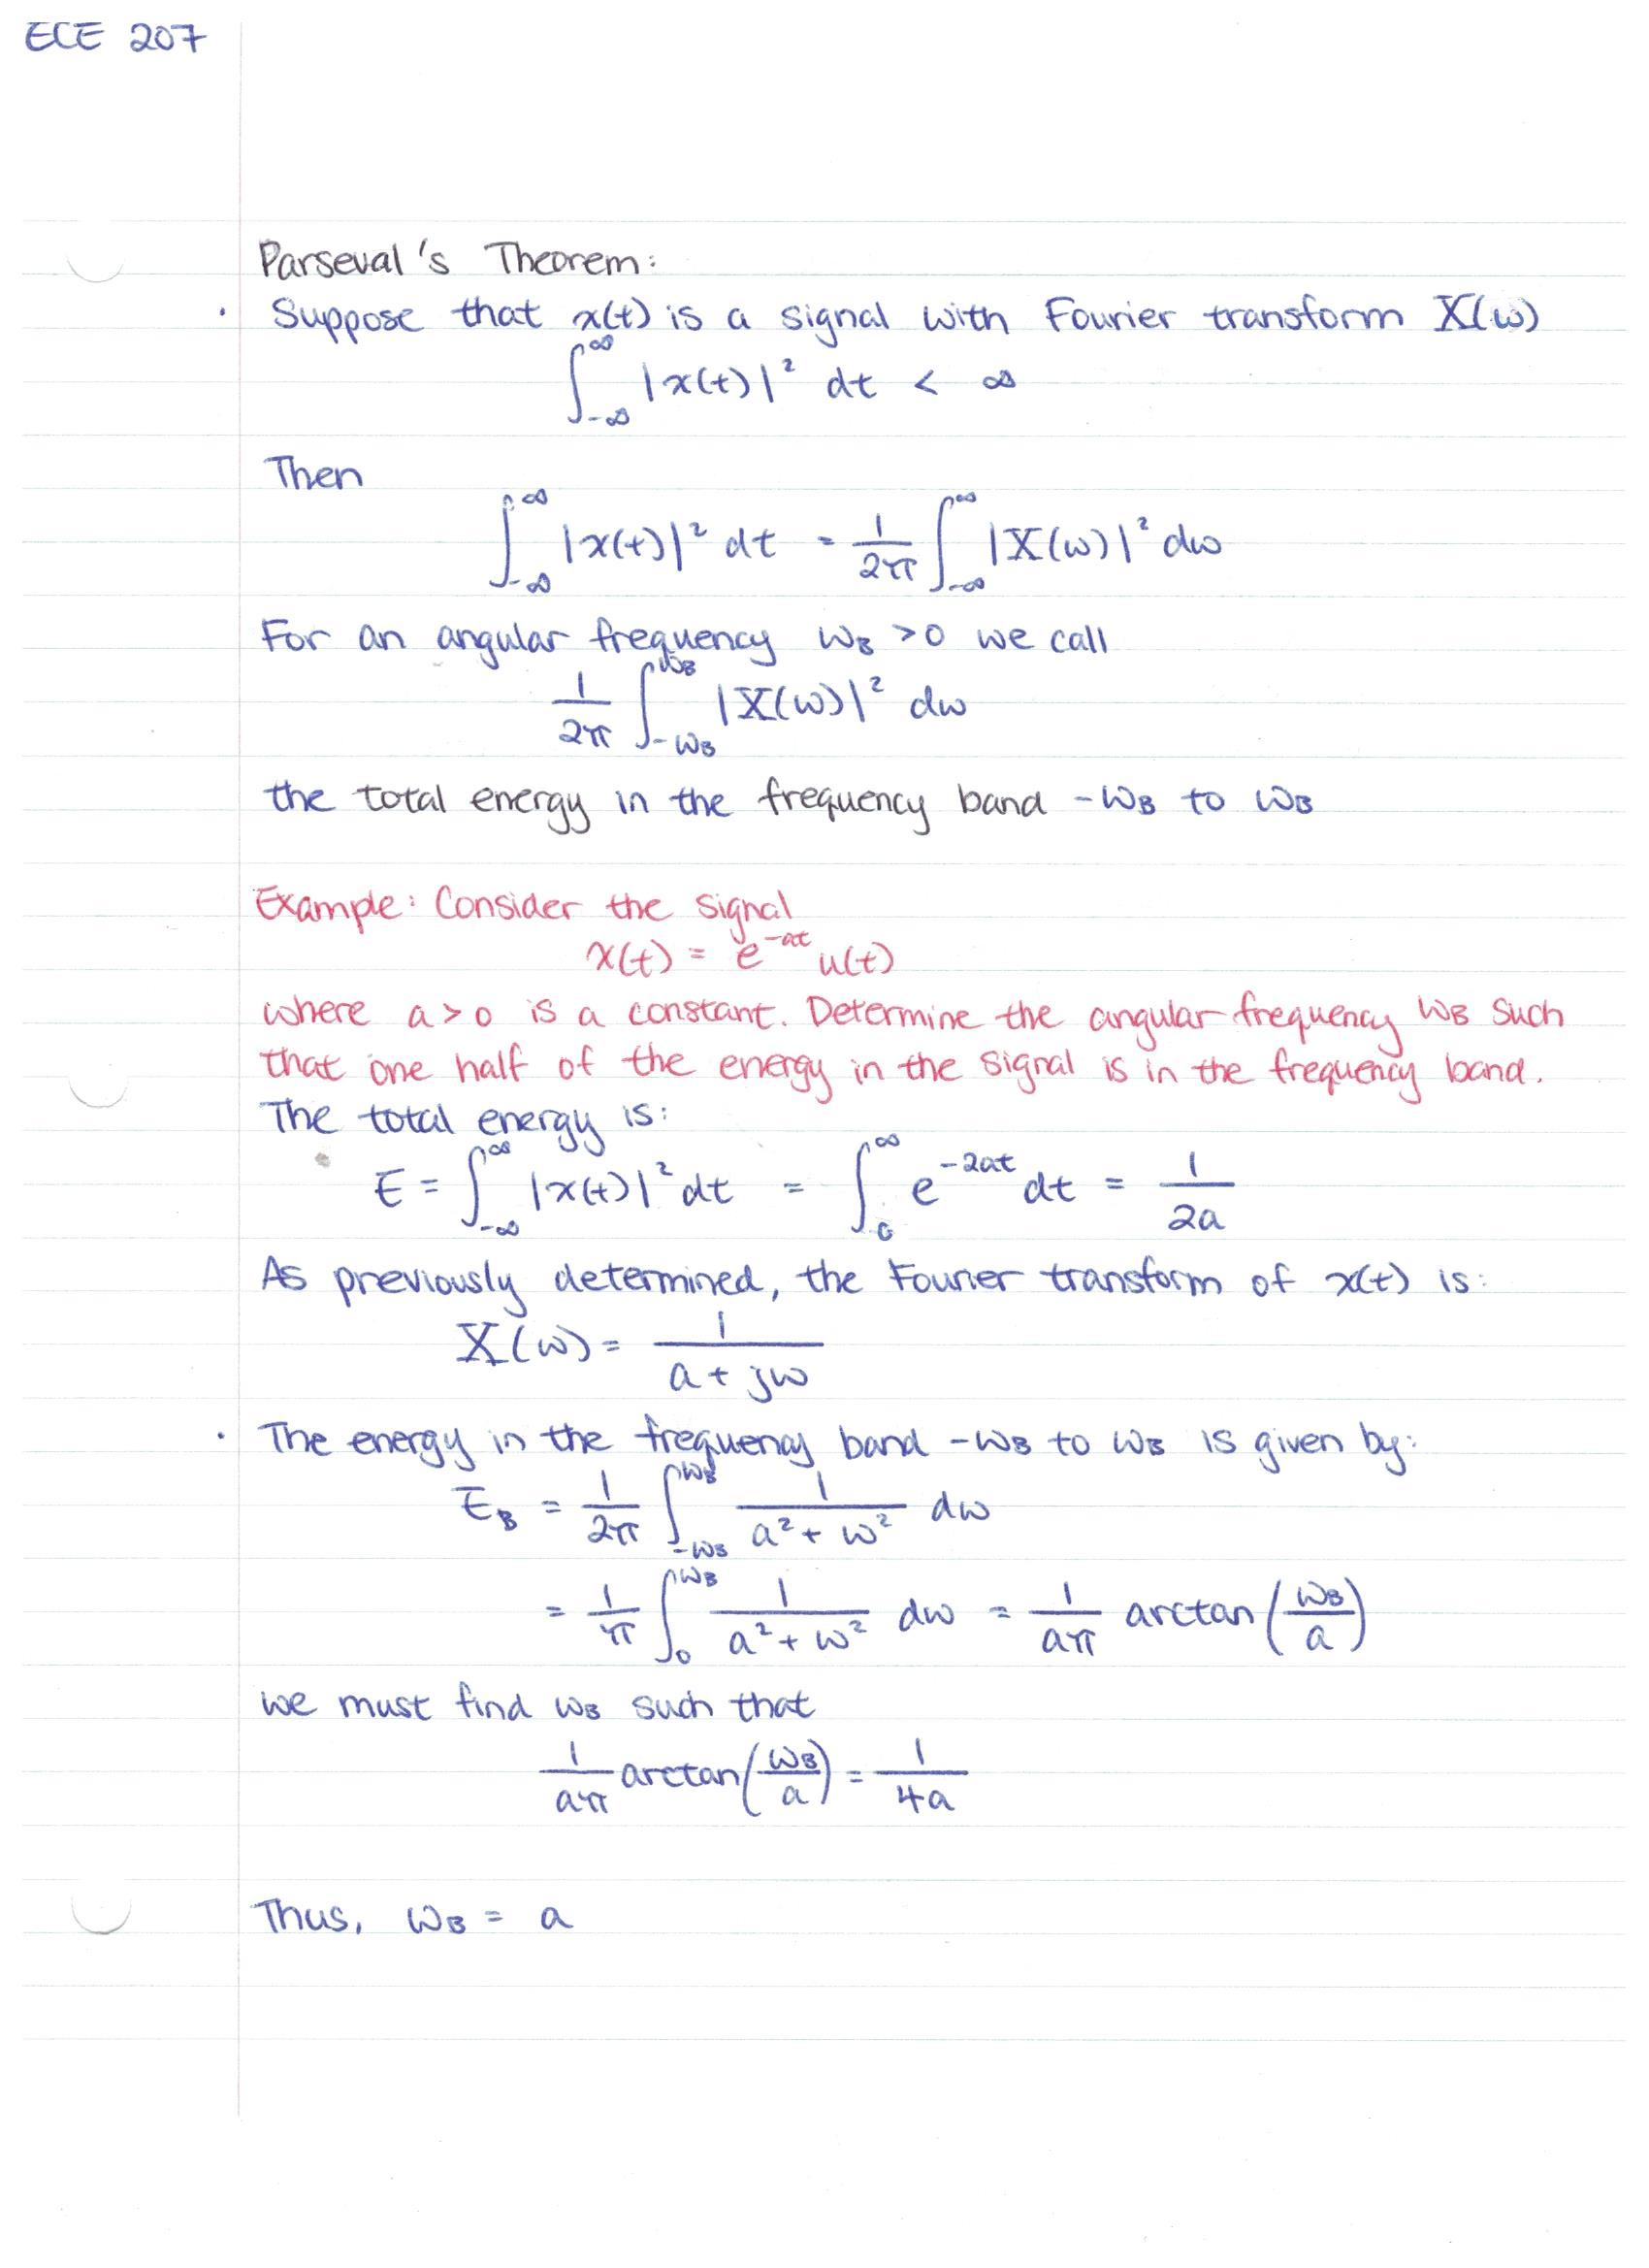 ECE 207
Parseval's Theorem:
· Suppose that x(t) is a signal with Fourier transform X(ω)
∫_{-∞}^{∞} |x(t)|² dt < ∞
Then
∫_{-∞}^{∞} |x(t)|² dt = 1/2π ∫_{-∞}^{∞} |X(ω)|² dω
For an angular frequency ω_B > 0 we call
1/2π ∫_{-ω_B}^{ω_B} |X(ω)|² dω
the total energy in the frequency band -ω_B to ω_B
Example: Consider the signal
x(t) = e^{-at} u(t)
where a > 0 is a constant. Determine the angular frequency ω_B such
that one half of the energy in the signal is in the frequency band.
The total energy is:
E = ∫_{-∞}^{∞} |x(t)|² dt = ∫_{0}^{∞} e^{-2at} dt = 1/2a
As previously determined, the Fourier transform of x(t) is:
X(ω) = 1/(a + jω)
· The energy in the frequency band -ω_B to ω_B is given by:
E_B = 1/2π ∫_{-ω_B}^{ω_B} 1/(a² + ω²) dω
= 1/π ∫_{0}^{ω_B} 1/(a² + ω²) dω = 1/aπ arctan(ω_B/a)
we must find ω_B such that
1/aπ arctan(ω_B/a) = 1/4a
Thus, ω_B = a